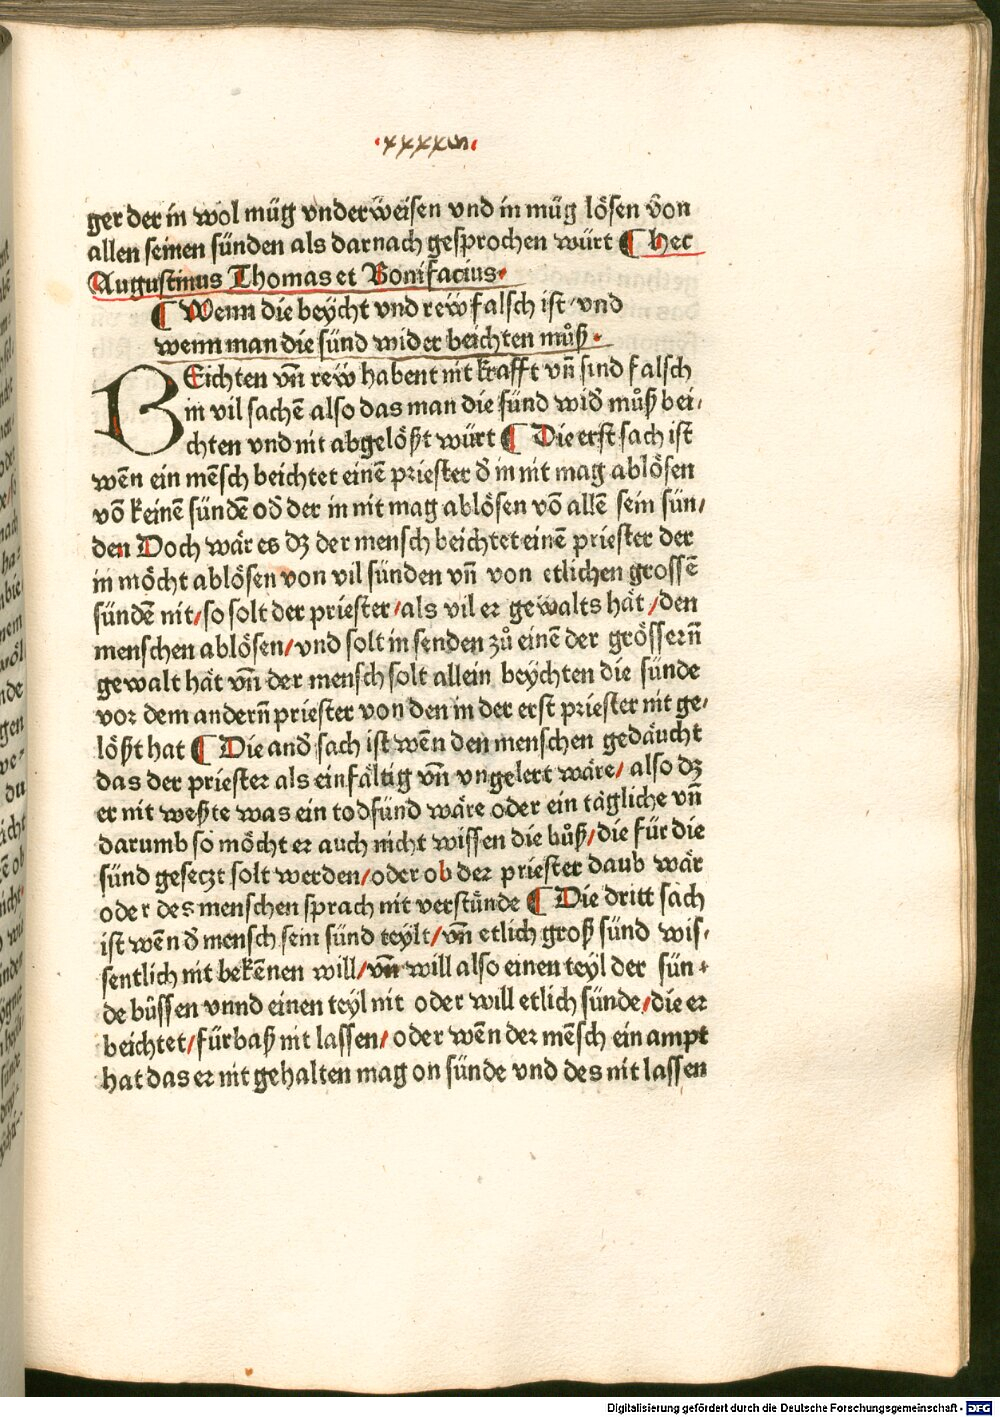 ger der in wol müg vnderweisen vnd in müg lösen von
allen seinen sünden als darnach gesprochen würt ¶ hec
Augustinus Thomas et Bonifacius.
¶ Wenn die beÿcht vnd rew falsch ist vnd
wenn man die sünd wider beichten můß.
BEichten vn̄ rew habent nit krafft vn̄ sind falsch
in vil sachē also das man die sünd wid̄ můß bei⸗
chten vnd nit abgelößt würt ¶ Die erst sach ist
wēn ein mēsch beichtet einē priester d̄ in nit mag ablösen
vō keinē sündē od̄ der in nit mag ablösen vō allē sein sün⸗
den Doch wär es dz der mensch beichtet einē priester der
in möcht ablösen von vil sünden vn̄ von etlichen grossē
sündē nit/so solt der priester/als vil er gewalts hät/den
menschen ablösen/vnd solt in senden zů einē der grössern̄
gewalt hät vn̄ der mensch solt allein beÿchten die sünde
vor dem andern̄ priester von den in der erst priester nit ge⸗
lößt hat ¶ Die and̄ sach ist wēn den menschen gedäucht
das der priester als einfältig vn̄ vngelert wäre/ also dz
er nit weßte was ein todsünd wäre oder ein tägliche vn̄
darumb so möcht er auch nicht wissen die bůß/die für die
sünd geseczt solt werden/oder ob der priester daub wär
oder des menschen sprach nit verstünde ¶ Die dritt sach
ist wēn d̄ mensch sein sünd teÿlt/vn̄ etlich groß sünd wis⸗
sentlich nit bekēnen will/vn̄ will also einen teÿl der sün⸗
de bůssen vnnd einen teÿl nit oder will etlich sünde/die er
beichtet/fürbaß nit lassen/oder wēn der mēsch ein ampt
hat das er nit gehalten mag on sünde vnd des nit lassen
Digitalisierung gefördert durch die Deutsche Forschungsgemeinschaft - DFG